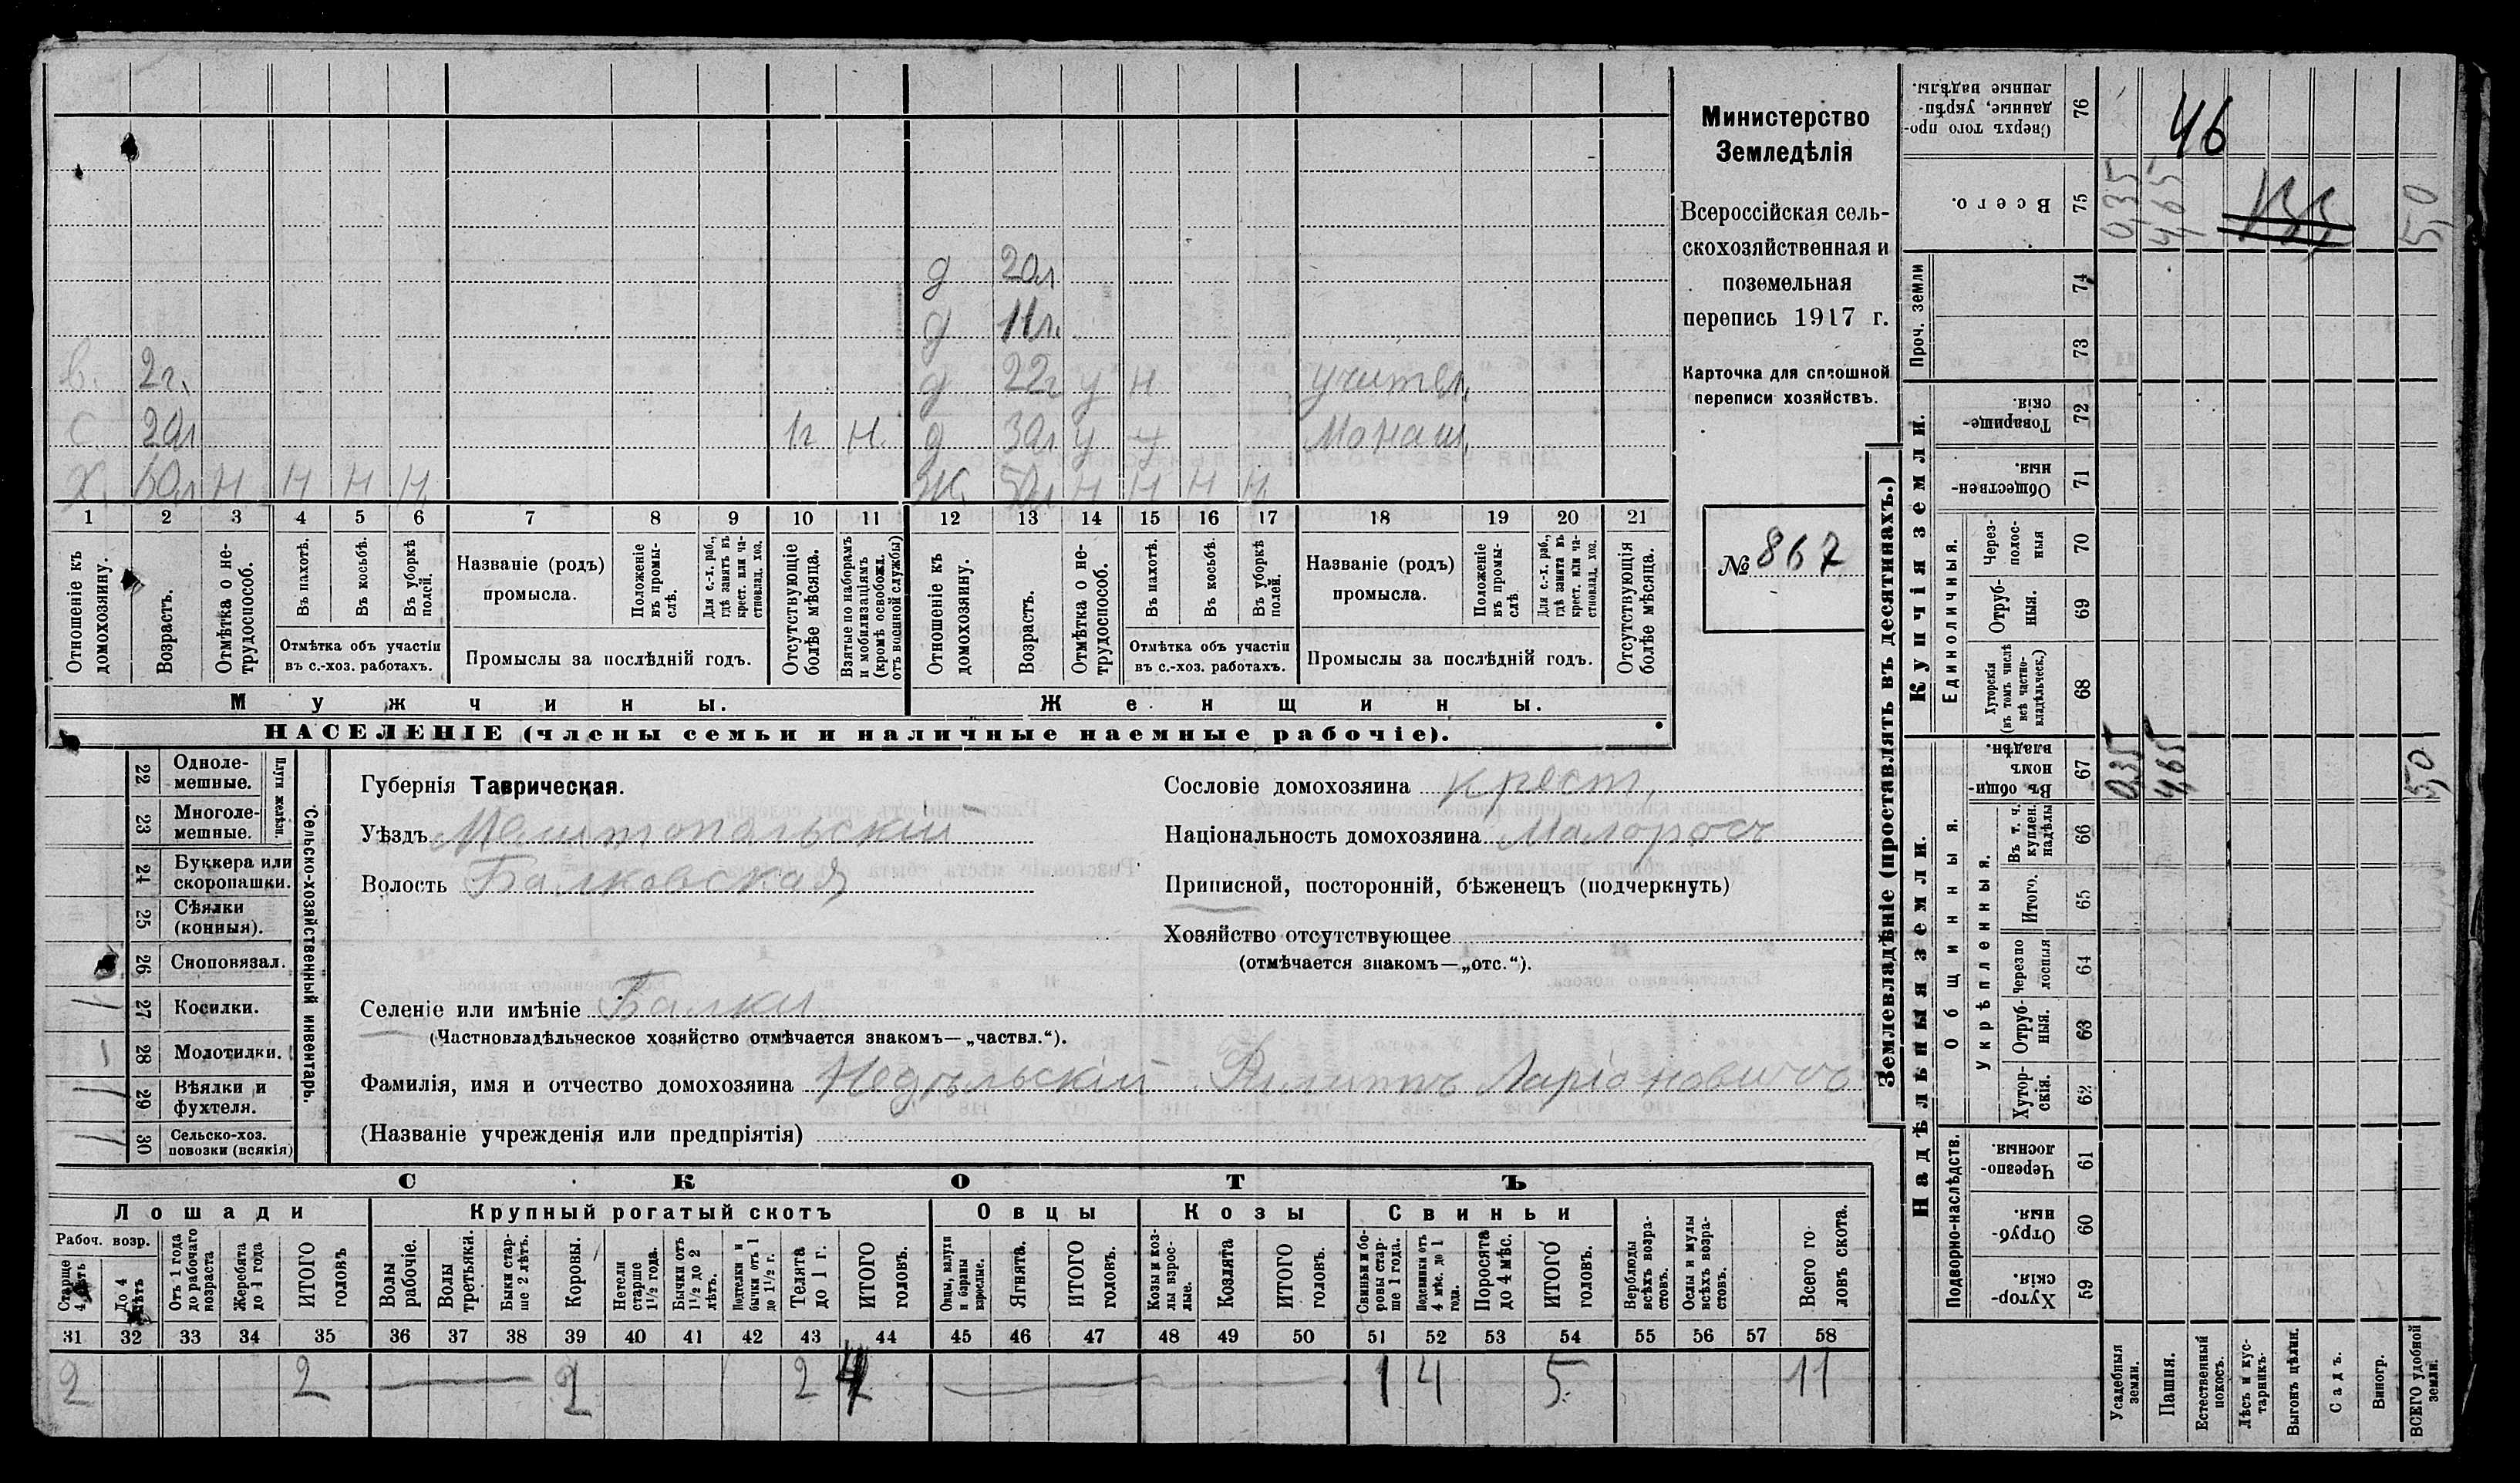 Министерство
Земледѣлія
Всероссійская сель-
скохозяйственная и
поземельная
перепись 1917 г.
Карточка для сплошной
переписи хозяйствъ.
№ 867
д 20л
д 11л.
в. 2г. д 22г у н учител.
с 20л 1г н. д 30л у н Монаш.
Х. 50л н н н н. Ж. 50л н н н н.
1 2 3 4 5 6 7 8 9 10 11 12 13 14 15 16 17 18 19 20 21
Отношеніе къ домохозяину.
Возрастъ.
Отмѣтка о не-трудоспособ.
Въ пахотѣ.
Въ косьбѣ.
Въ уборкѣ полей.
Отмѣтка объ участіи въ с.-хоз. работахъ.
Названіе (родъ) промысла.
Положеніе въ промы-слѣ.
Для с.-х. раб., гдѣ занятъ въ крест. или ча-стновлад. хоз.
Промыслы за послѣдній годъ.
Отсутствующіе болѣе мѣсяца.
Взятые по наборамъ и мобилизаціямъ (кромѣ освобожд. отъ военной службы)
Отношеніе къ домохозяину.
Возрастъ.
Отмѣтка о не-трудоспособ.
Въ пахотѣ.
Въ косьбѣ.
Въ уборкѣ полей.
Отмѣтка объ участіи въ с.-хоз. работахъ.
Названіе (родъ) промысла.
Положеніе въ промы-слѣ.
Для с.-х. раб., гдѣ занята въ крест. или ча-стновлад. хоз.
Промыслы за послѣдній годъ.
Отсутствующія болѣе мѣсяца.
Мужчины. Женщины.
НАСЕЛЕНІЕ (члены семьи и наличные наемные рабочіе).
22 Одноле-мешные.
23 Многоле-мешные.
Плуги желѣзн.
24 Буккера или скоропашки.
25 Сѣялки (конныя).
26 Сноповязал.
1 27 Косилки.
1 28 Молотилки.
1 29 Вѣялки и фухтеля.
1 30 Сельско-хоз. повозки (всякія)
Сельско-хозяйственный инвентарь.
Губернія Таврическая.
Уѣздъ Мелитопольскій
Волость Балковская
Селеніе или имѣніе Балки
(Частновладѣльческое хозяйство отмѣчается знакомъ—„частвл.“).
Фамилія, имя и отчество домохозяина Недѣльскій Филиппъ Ларіоновичъ
(Названіе учрежденія или предпріятія)
Сословіе домохозяина крест.
Національность домохозяина Малоросъ
Приписной, посторонній, бѣженецъ (подчеркнуть)
Хозяйство отсутствующее
(отмѣчается знакомъ—„отс.“).
СКОТЪ
Лошади Крупный рогатый скотъ Овцы Козы Свиньи
Рабоч. возр.
Старше 4 лѣтъ
До 4 лѣтъ
Отъ 1 года до рабочаго возраста
Жеребята до 1 года
ИТОГО головъ
Волы рабочіе.
Волы третьяки.
Быки стар-ше 2 лѣтъ.
Коровы.
Нетели старше 1½ года.
Бычки отъ 1½ до 2 лѣтъ.
Подтелки и бычки отъ 1 до 1½ г.
Телята до 1 г.
ИТОГО головъ.
Овцы, валухи и бараны взрослые.
Ягнята.
ИТОГО головъ.
Козы и коз-лы взрос-лые.
Козлята
ИТОГО головъ.
Свиньи и бо-ровы стар-ше 1 года.
Подсвинки отъ 4 мѣс. до 1 года.
Поросята до 4 мѣс.
ИТОГО головъ.
Верблюды всѣхъ возра-стовъ.
Ослы и мулы всѣхъ возра-стовъ.
Всего го-ловъ скота.
31 32 33 34 35 36 37 38 39 40 41 42 43 44 45 46 47 48 49 50 51 52 53 54 55 56 57 58
2 2 2 2 4 1 4 5 11
Землевладѣніе (проставлять въ десятинахъ.)
Сверхъ того про-данные, укрѣп-ленные надѣлы. 76
46
Всего. 75 0,35 4,65 5,0
Проч. земли 74 73
Купчія земли.
Товарище-скія. 72
Обществен-ныя. 71
Единоличныя.
Через-полос-ныя 70
Отруб-ныя. 69
Хуторскія (въ томъ числѣ всѣ частно-владѣльческ.) 68
Надѣльныя земли.
Общинныя.
Въ общин-номъ владѣн. 67 0,35 4,65 5,0
Укрѣпленныя.
Въ т. ч. куплен. надѣлы 66
Итого. 65
Черезпо-лосныя 64
Отруб-ныя. 63
Хутор-скія. 62
Подворно-наслѣдств.
Черезпо-лосныя. 61
Отруб-ныя. 60
Хутор-скія. 59
Усадебныя земли.
Пашня.
Естественный покосъ.
Лѣсъ и кус-тарникъ.
Выгонъ цѣлин.
Садъ.
Виногр.
ВСЕГО удобной земли.